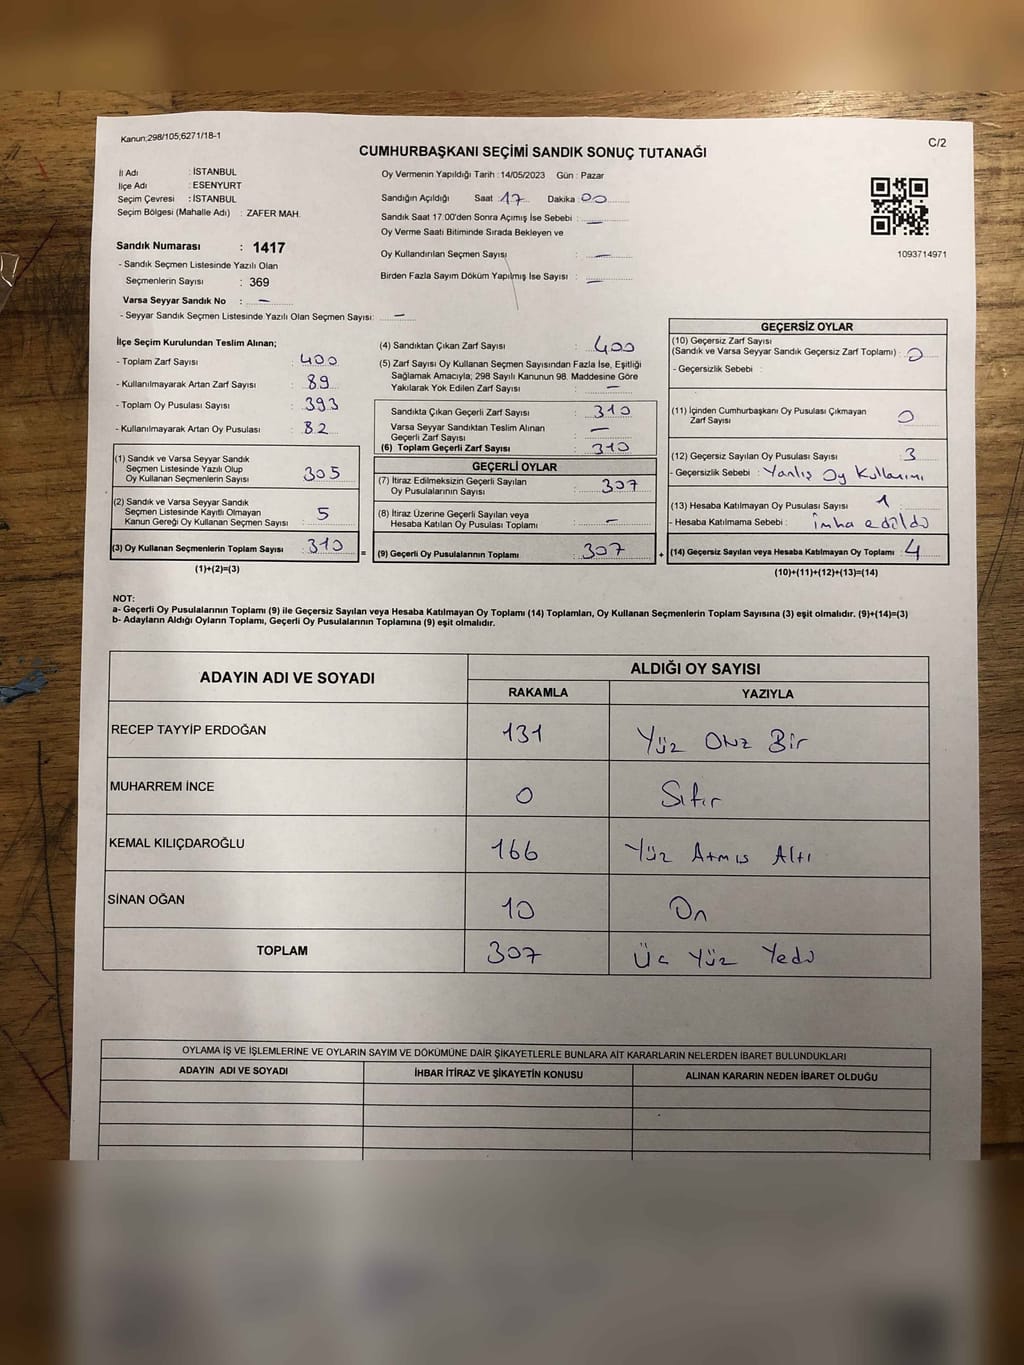 Kanun;298/105;6271/18-1
C/2
CUMHURBAŞKANI SEÇİMİ SANDIK SONUÇ TUTANAĞI
İl Adı : İSTANBUL
İlçe Adı : ESENYURT
Seçim Çevresi : İSTANBUL
Seçim Bölgesi (Mahalle Adı) : ZAFER MAH.
Sandık Numarası : 1417
- Sandık Seçmen Listesinde Yazılı Olan
Seçmenlerin Sayısı : 369
Varsa Seyyar Sandık No : –
- Seyyar Sandık Seçmen Listesinde Yazılı Olan Seçmen Sayısı: –
Oy Vermenin Yapıldığı Tarih : 14/05/2023 Gün : Pazar
Sandığın Açıldığı Saat 17 Dakika 00
Sandık Saat 17:00'den Sonra Açımış İse Sebebi : –
Oy Verme Saati Bitiminde Sırada Bekleyen ve
Oy Kullandırılan Seçmen Sayısı : –
Birden Fazla Sayım Döküm Yapılmış İse Sayısı : –
1093714971
İlçe Seçim Kurulundan Teslim Alınan;
- Toplam Zarf Sayısı : 400
- Kullanılmayarak Artan Zarf Sayısı : 89
- Toplam Oy Pusulası Sayısı : 393
- Kullanılmayarak Artan Oy Pusulası : 82
(1) Sandık ve Varsa Seyyar Sandık
Seçmen Listesinde Yazılı Olup
Oy Kullanan Seçmenlerin Sayısı : 305
(2) Sandık ve Varsa Seyyar Sandık
Seçmen Listesinde Kayıtlı Olmayan
Kanun Gereği Oy Kullanan Seçmen Sayısı : 5
(3) Oy Kullanan Seçmenlerin Toplam Sayısı : 310
(1)+(2)=(3)
(4) Sandıktan Çıkan Zarf Sayısı : 400
(5) Zarf Sayısı Oy Kullanan Seçmen Sayısından Fazla İse, Eşitliği
Sağlamak Amacıyla; 298 Sayılı Kanunun 98. Maddesine Göre
Yakılarak Yok Edilen Zarf Sayısı : –
Sandıkta Çıkan Geçerli Zarf Sayısı : 310
Varsa Seyyar Sandıktan Teslim Alınan
Geçerli Zarf Sayısı : –
(6) Toplam Geçerli Zarf Sayısı : 310
GEÇERLİ OYLAR
(7) İtiraz Edilmeksizin Geçerli Sayılan
Oy Pusulalarının Sayısı : 307
(8) İtiraz Üzerine Geçerli Sayılan veya
Hesaba Katılan Oy Pusulası Toplamı : –
= (9) Geçerli Oy Pusulalarının Toplamı : 307
GEÇERSİZ OYLAR
(10) Geçersiz Zarf Sayısı
(Sandık ve Varsa Seyyar Sandık Geçersiz Zarf Toplamı) : 0
- Geçersizlik Sebebi :
(11) İçinden Cumhurbaşkanı Oy Pusulası Çıkmayan
Zarf Sayısı : 0
(12) Geçersiz Sayılan Oy Pusulası Sayısı : 3
- Geçersizlik Sebebi : Yanlış Oy Kullanımı
(13) Hesaba Katılmayan Oy Pusulası Sayısı : 1
- Hesaba Katılmama Sebebi : imha edildi
+ (14) Geçersiz Sayılan veya Hesaba Katılmayan Oy Toplamı : 4
(10)+(11)+(12)+(13)=(14)
NOT:
a- Geçerli Oy Pusulalarının Toplamı (9) ile Geçersiz Sayılan veya Hesaba Katılmayan Oy Toplamı (14) Toplamları, Oy Kullanan Seçmenlerin Toplam Sayısına (3) eşit olmalıdır. (9)+(14)=(3)
b- Adayların Aldığı Oyların Toplamı, Geçerli Oy Pusulalarının Toplamına (9) eşit olmalıdır.
ADAYIN ADI VE SOYADI
ALDIĞI OY SAYISI
RAKAMLA YAZIYLA
RECEP TAYYİP ERDOĞAN 131 Yüz Otuz Bir
MUHARREM İNCE 0 Sıfır
KEMAL KILIÇDAROĞLU 166 Yüz Atmış Altı
SİNAN OĞAN 10 On
TOPLAM 307 Üc Yüz Yedi
OYLAMA İŞ VE İŞLEMLERİNE VE OYLARIN SAYIM VE DÖKÜMÜNE DAİR ŞİKAYETLERLE BUNLARA AİT KARARLARIN NELERDEN İBARET BULUNDUKLARI
ADAYIN ADI VE SOYADI İHBAR İTİRAZ VE ŞİKAYETİN KONUSU ALINAN KARARIN NEDEN İBARET OLDUĞU